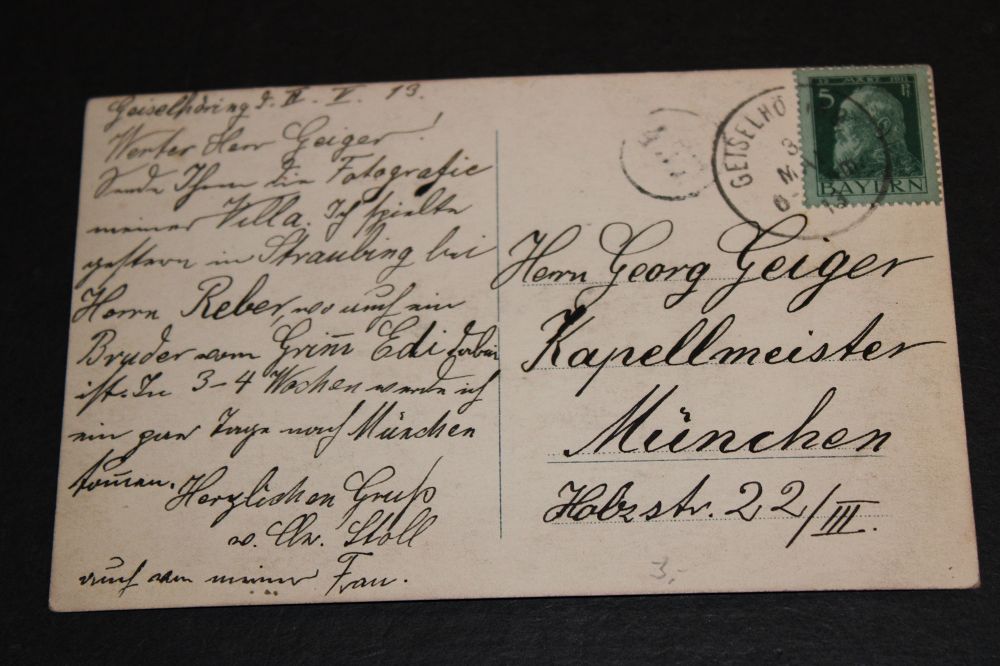 Geiselhöring d. II. V. 13.
Werter Herr Geiger!
Sende Ihnen die Fotografie
meiner Villa. Ich spielte
gestern in Straubing bei
Herrn Reber, wo auch ein
Bruder vom Grim̄ Edi dabei
ist. In 3-4 Wochen werde ich
ein paar Tage nach München
kom̄en.
Herzlichen Gruß
v. Stoll
auch von meiner Frau.
12. MÄRZ 1911
5 Pf
BAYERN
GEISELHÖ
8
MAI
13
Herrn Georg Geiger
Kapellmeister
München
Holzstr. 22/III.
3,-